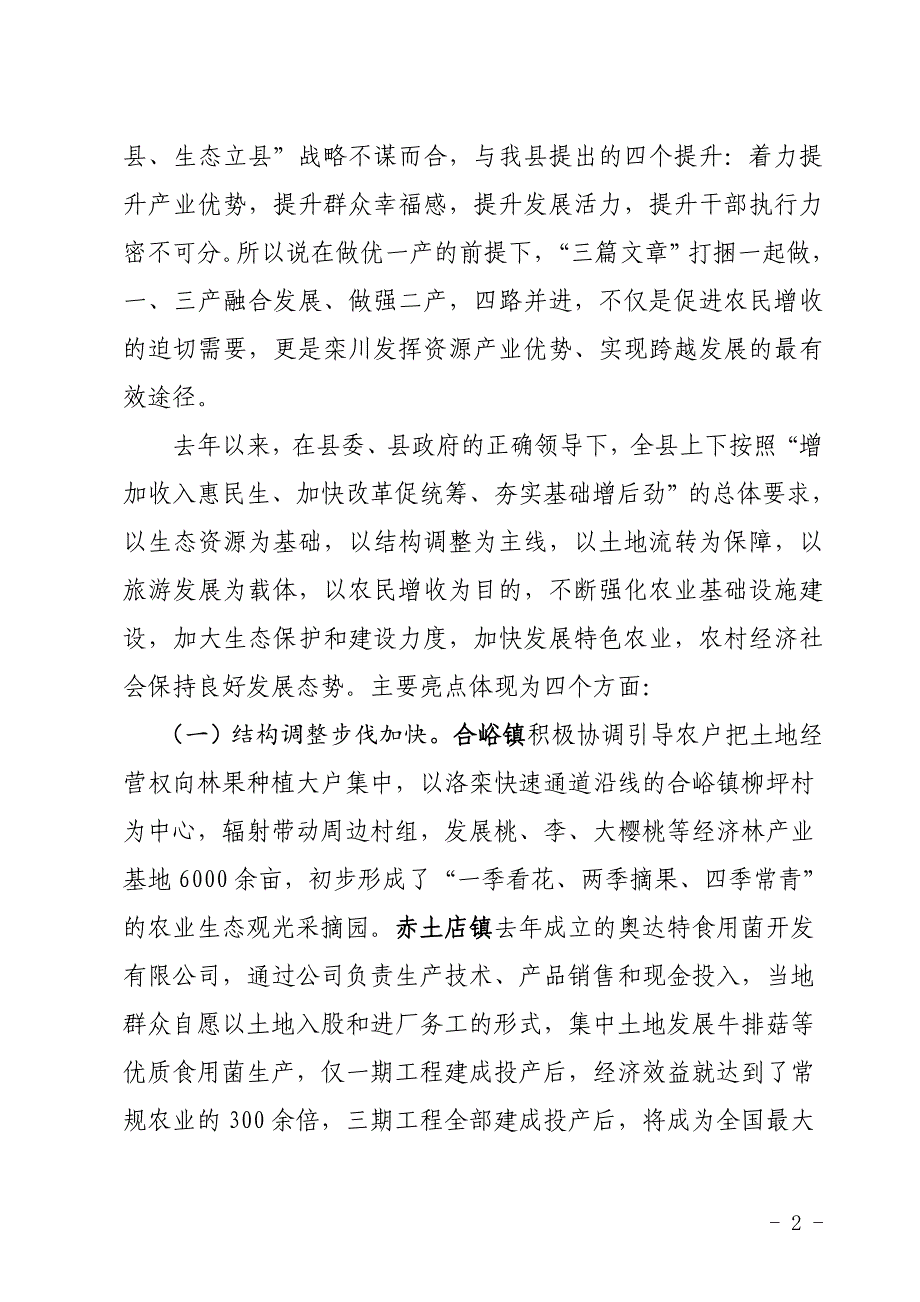 县、生态立县”战略不谋而合，与我县提出的四个提升：着力提
升产业优势，提升群众幸福感，提升发展活力，提升干部执行力
密不可分。所以说在做优一产的前提下，“三篇文章”打捆一起做，
一、三产融合发展、做强二产，四路并进，不仅是促进农民增收
的迫切需要，更是栾川发挥资源产业优势、实现跨越发展的最有
效途径。
去年以来，在县委、县政府的正确领导下，全县上下按照“增
加收入惠民生、加快改革促统筹、夯实基础增后劲”的总体要求，
以生态资源为基础，以结构调整为主线，以土地流转为保障，以
旅游发展为载体，以农民增收为目的，不断强化农业基础设施建
设，加大生态保护和建设力度，加快发展特色农业，农村经济社
会保持良好发展态势。主要亮点体现为四个方面：
（一）结构调整步伐加快。合峪镇积极协调引导农户把土地经
营权向林果种植大户集中，以洛栾快速通道沿线的合峪镇柳坪村
为中心，辐射带动周边村组，发展桃、李、大樱桃等经济林产业
基地 6000 余亩，初步形成了“一季看花、两季摘果、四季常青”
的农业生态观光采摘园。赤土店镇去年成立的奥达特食用菌开发
有限公司，通过公司负责生产技术、产品销售和现金投入，当地
群众自愿以土地入股和进厂务工的形式，集中土地发展牛排菇等
优质食用菌生产，仅一期工程建成投产后，经济效益就达到了常
规农业的 300 余倍，三期工程全部建成投产后，将成为全国最大
- 2 -